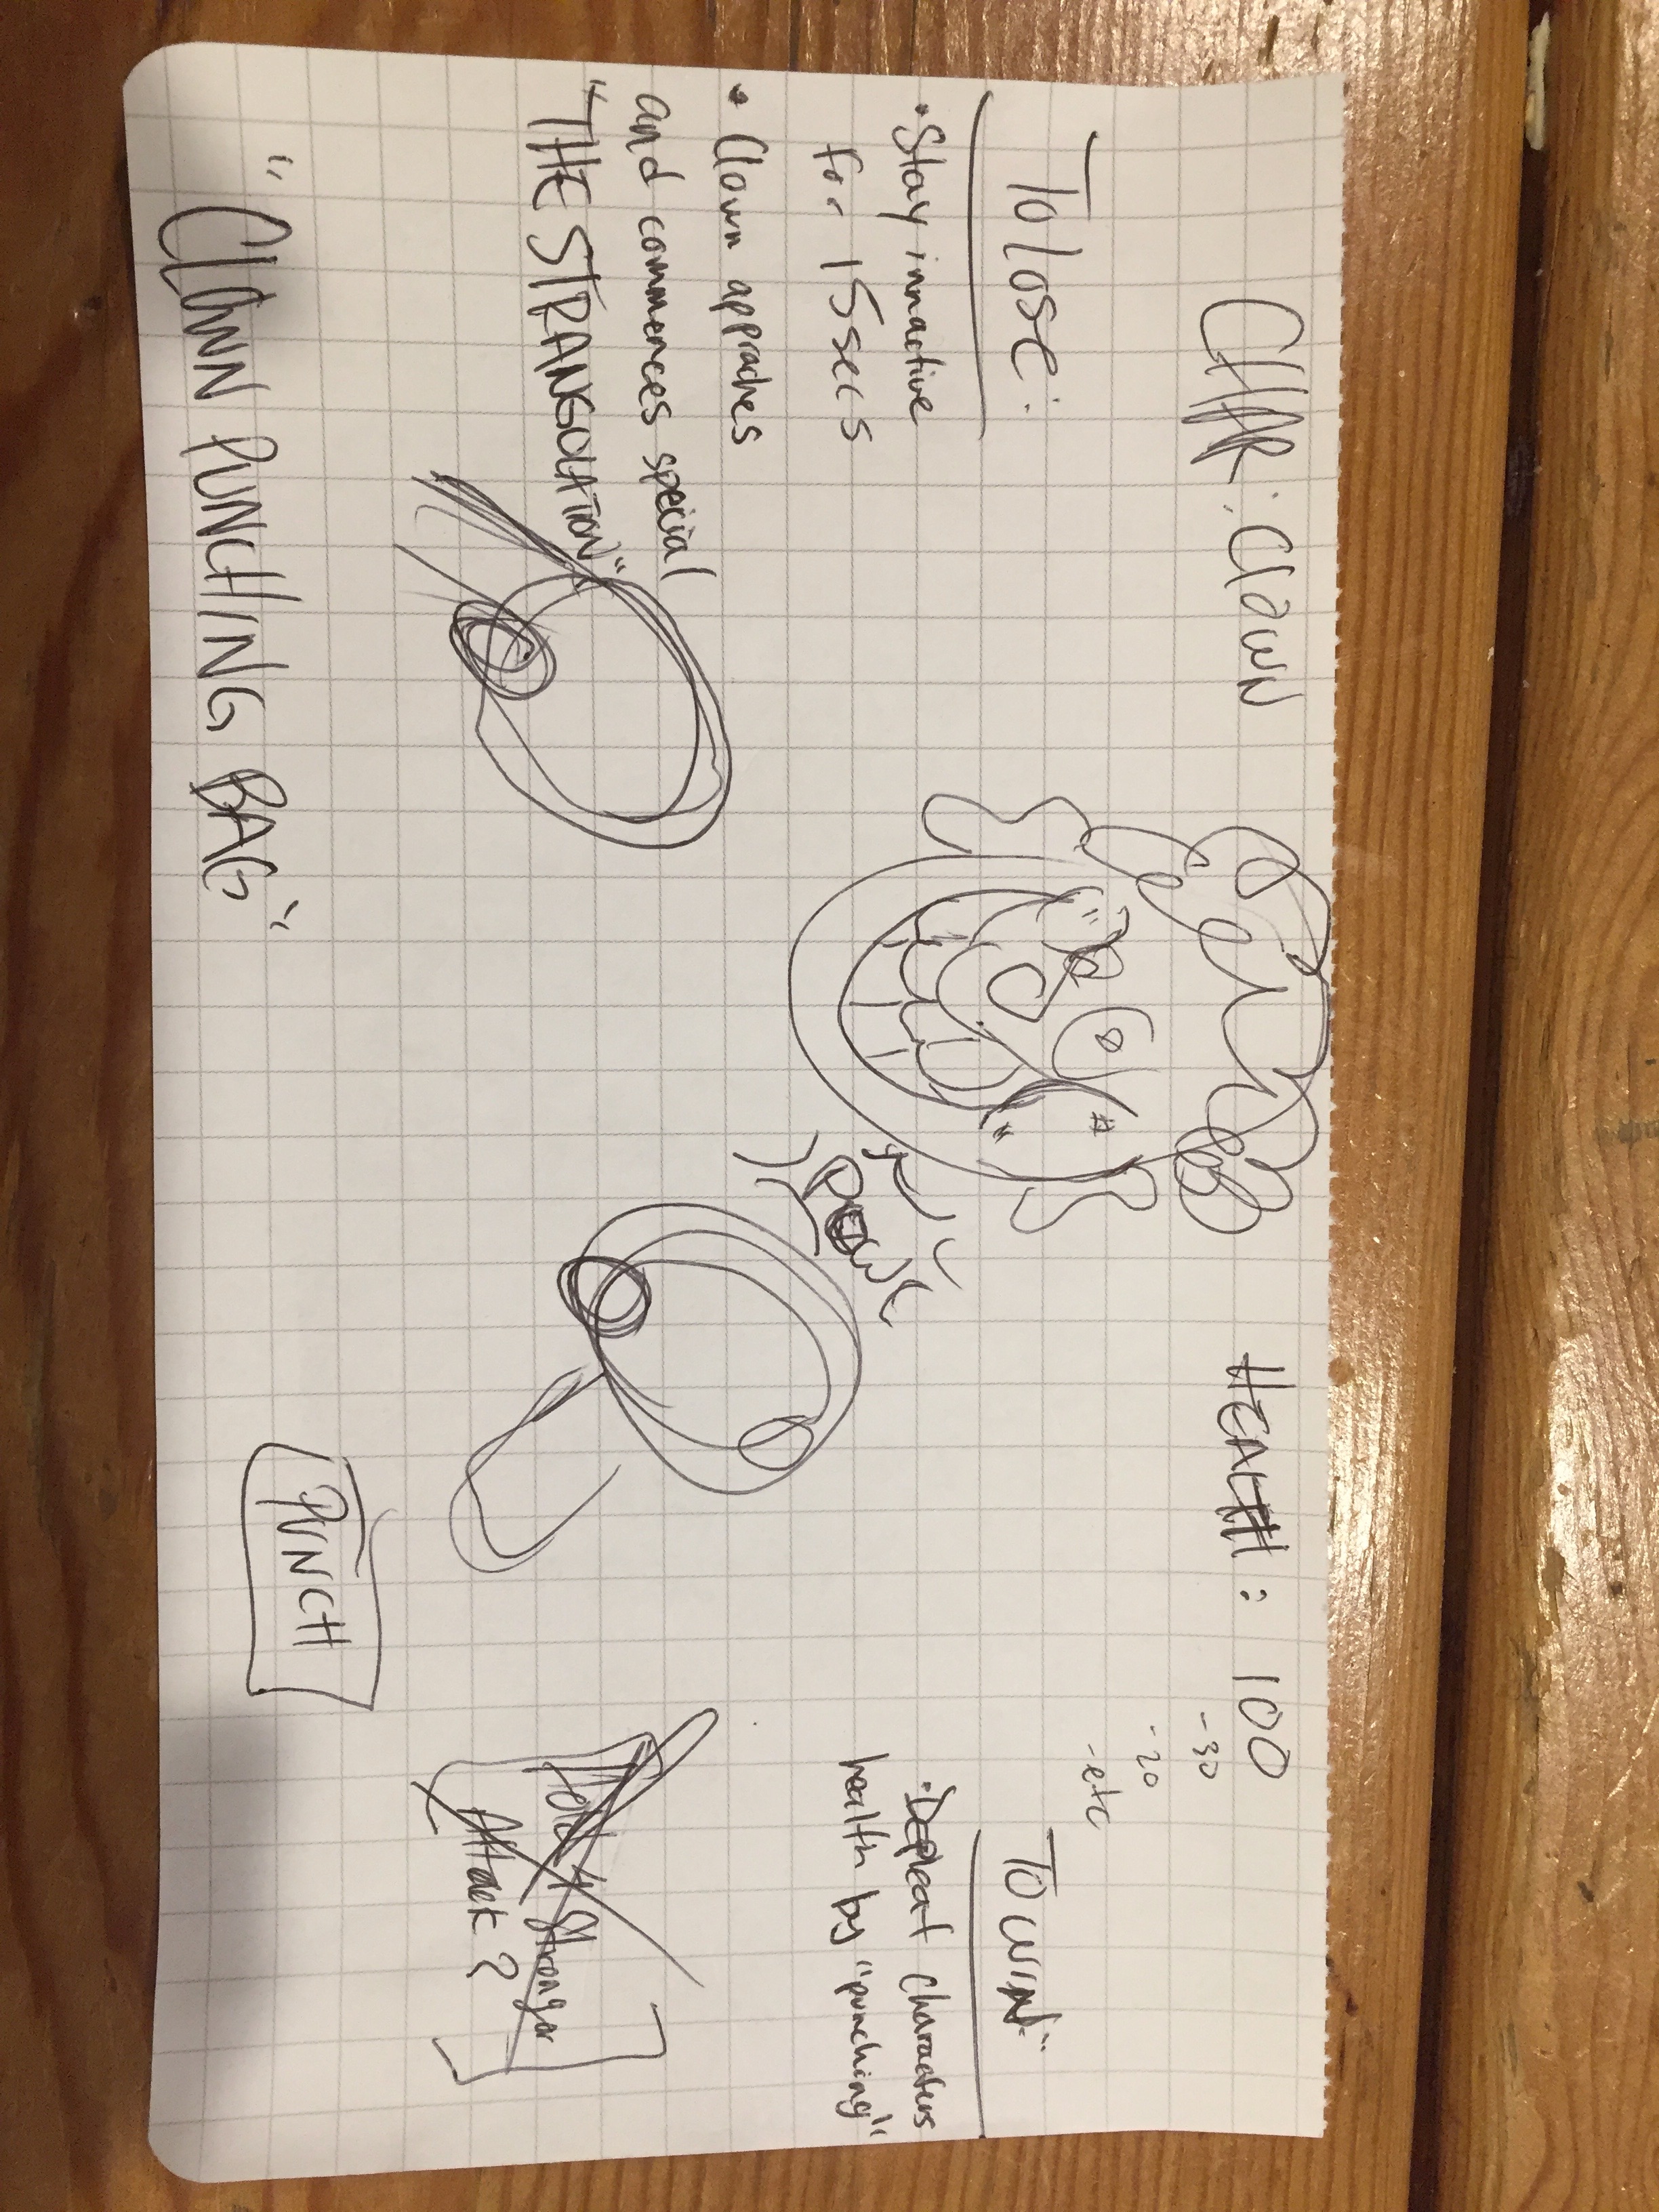 CHAR: Clown
HEALTH: 100
-30
-20
-etc
To lose:
•Stay innactive
for 15secs
• Clown appraches
and commences special
"THE STRANGULATION"
POW
TO WIN:
•Depleat characters
health by "punching"
Stronger
Attack?
PUNCH
"CLOWN PUNCHING BAG"